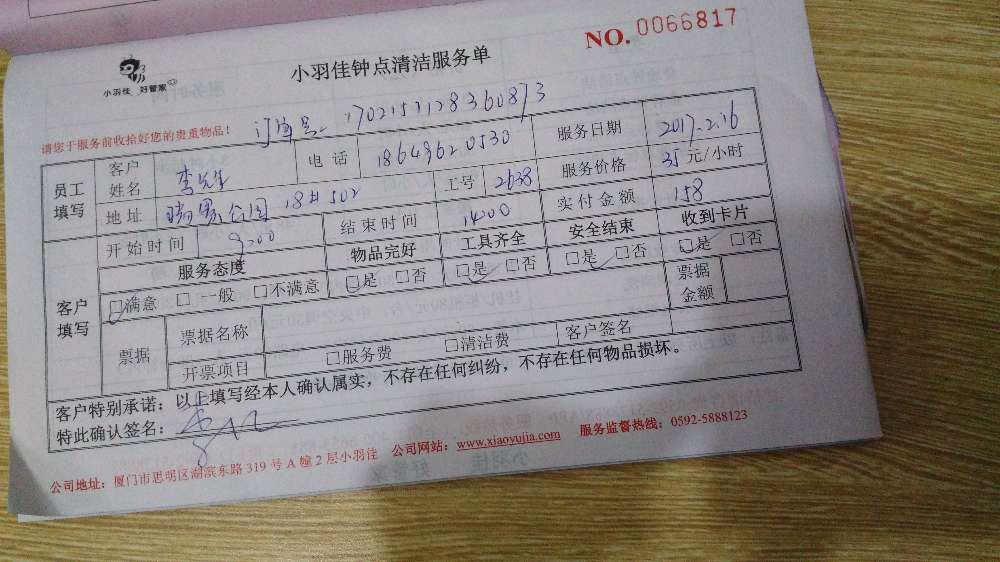 NO. 0066817
小羽佳 好管家
小羽佳钟点清洁服务单
请您于服务前收拾好您的贵重物品!
订单号: 1702151128360873
员工填写 客户姓名 李先生 电话 18649620530 服务日期 2017.2.16
地址 瑞景公园 18# 502 工号 2638 服务价格 35元/小时
开始时间 9:00 结束时间 14:00 实付金额 158
客户填写 服务态度 物品完好 工具齐全 安全结束 收到卡片
□满意 □一般 □不满意 □是 □否 □是 □否 □是 □否 □是 □否
票据 票据名称 票据金额
开票项目 □服务费 □清洁费 客户签名
客户特别承诺:以上填写经本人确认属实,不存在任何纠纷,不存在任何物品损坏。
特此确认签名:
公司地址:厦门市思明区湖滨东路 319 号 A 幢 2 层小羽佳 公司网站:www.xiaoyujia.com 服务监督热线:0592-5888123